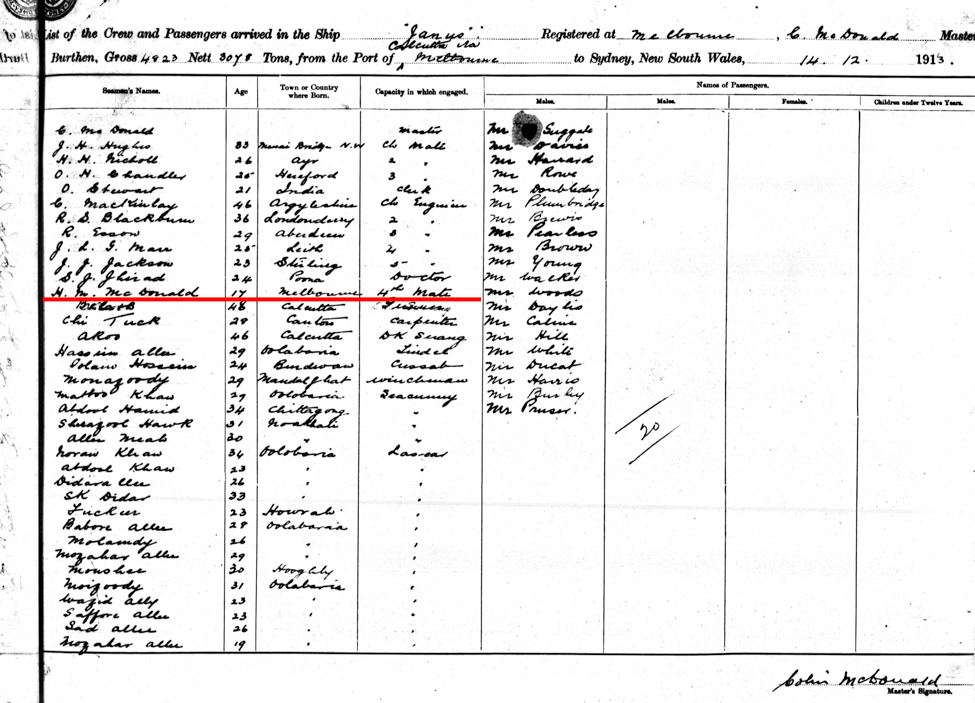 List of the Crew and Passengers arrived in the Ship "Janus" Registered at Melbourne, C. McDonald Master
Calcutta via
Burthen, Gross 4823 Nett 3078 Tons, from the Port of Melbourne to Sydney, New South Wales, 14. 12. 1913.
Seamen's Names. Age Town or Country where Born. Capacity in which engaged. Names of Passengers.
Males. Males. Females. Children under Twelve Years.
C. McDonald Master Mr Suggate
J. H. Hughes 33 Menai Bridge N.W Ch Mate Mr Davies
H. H. Nicholl 26 Ayr 2 " Mr Harrard
O. H. Chandler 25 Hereford 3 " Mr Rowe
D. Stewart 21 India Clerk Mr Doubleday
C. MacKinlay 46 Argyleshire Ch Engineer Mr Plumbridge
R. S. Blackburn 36 Londonderry 2 " Mr Brewis
R. Esson 29 Aberdeen 3 " Mr Pearless
J. L. G. Marr 25 Leith 4 " Mr Brown
J. J. Jackson 23 Stirling 5 " Mr Young
S. J. Ghirad 24 Poona Doctor Mr Walker
H. M. McDonald 17 Melbourne 4th Mate Mr Woods
48 Calcutta Mr Daylis
Chi Tuck 28 Canton Carpenter Mr
Akoo 46 Calcutta DK Serang Mr Hill
Hassim Allee 29 Oolabaria Tindel Mr White
Golam Hossein 24 Burdwan Cussab Mr Ducat
Monagoody 29 Mandalghat Winchman Mr Harris
Khan 29 Oolobaria Seacunny Mr Burley
Abdool Hamid 34 Chittagong " Mr
Sherazool Hawk 31 Noakhali "
Allee Meah 30 " "
Noraw Khan 34 Oolobaria Lascar
Abdool Khan 23 " "
Didara Allee 26 " "
SK Didar 33 " "
Tucker 23 Howrah "
Babore Allee 28 Oolabaria "
Molamdy 26 " "
Mozahar Allee 29 " "
Monshee 30 Hooghly "
Moizoody 31 Oolabaria "
Wazid Ally 23 " "
Saffore Allee 23 " "
Sad Allee 26 " "
Mozahar Allee 19 " "
20
Colin McDonald
Master's Signature.